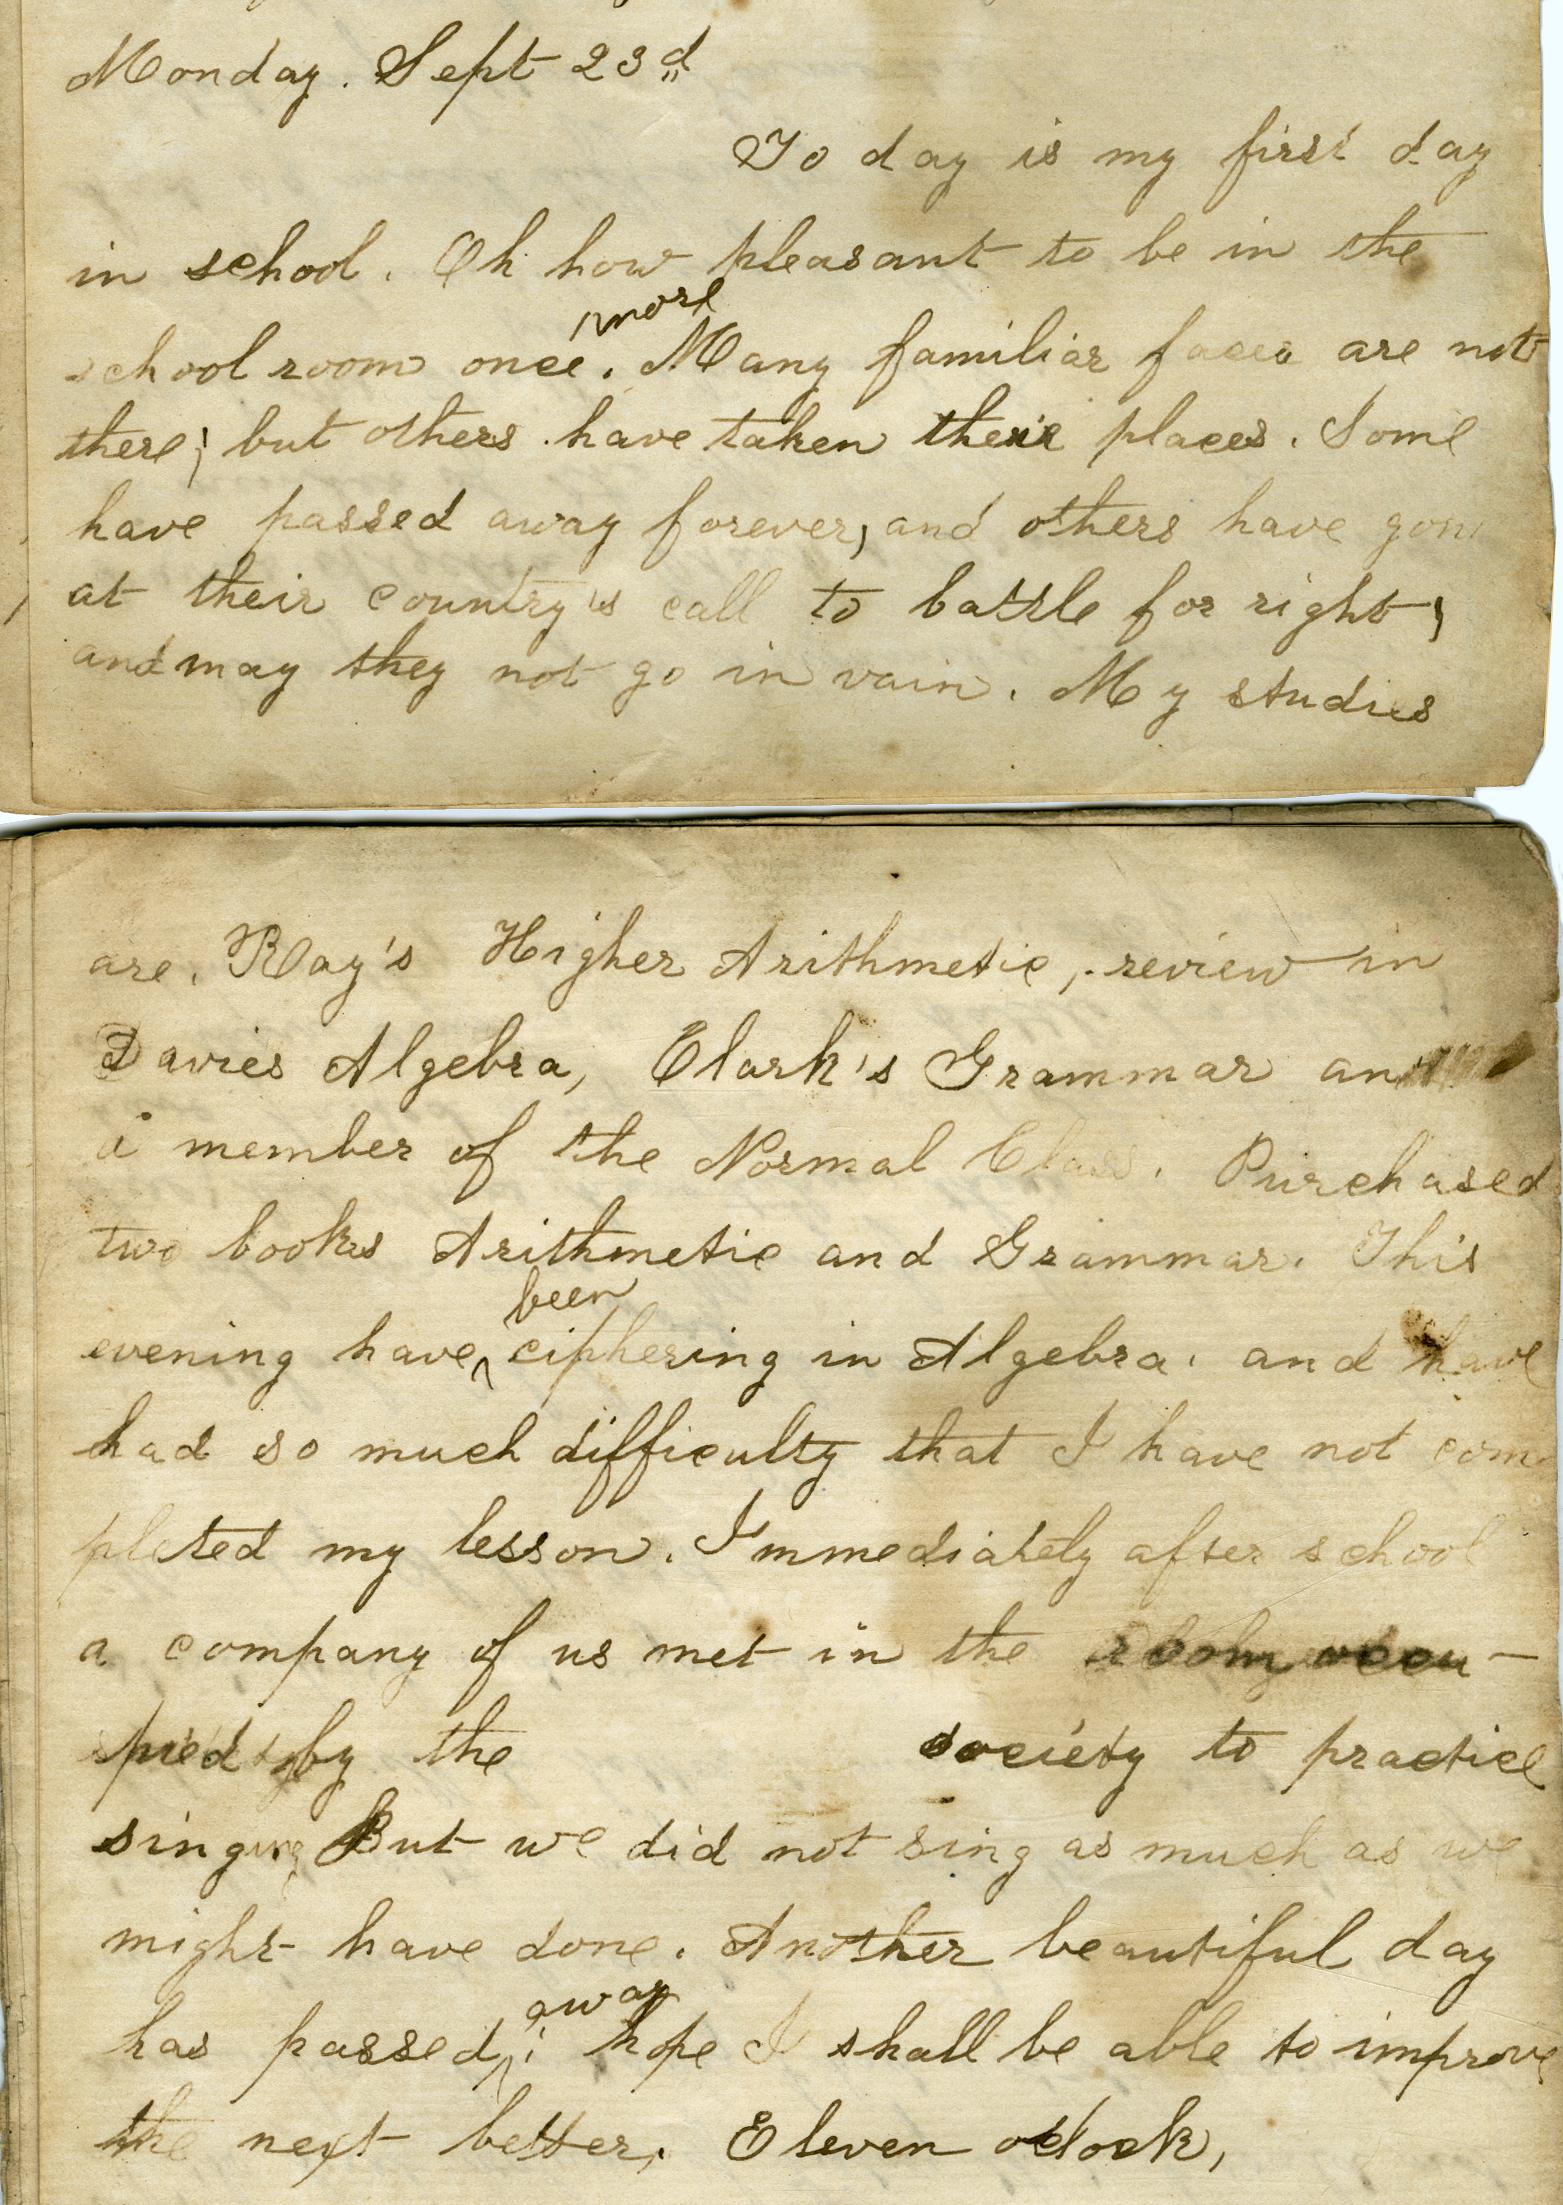 Monday. Sept 23d
To day is my first day
in school. Oh how pleasant to be in the
more
school room once. Many familiar faces are not
there; but others have taken their places. Some
have passed away forever, and others have gone
at their country's call to battle for right,
and may they not go in vain. My studies
are. Ray's Higher Arithmetic, review in
Davies Algebra, Clark's Grammar and
a member of the Normal Class. Purchased
two books Arithmetic and Grammar. This
been
evening have ciphering in Algebra. and have
had so much difficulty that I have not com
pleted my lesson. Immediately after school
a company of us met in the room occu-
pied by the society to practice
singing But we did not sing as much as we
might have done. Another beautiful day
away
has passed; hope I shall be able to improve
the next better. Eleven oclock,